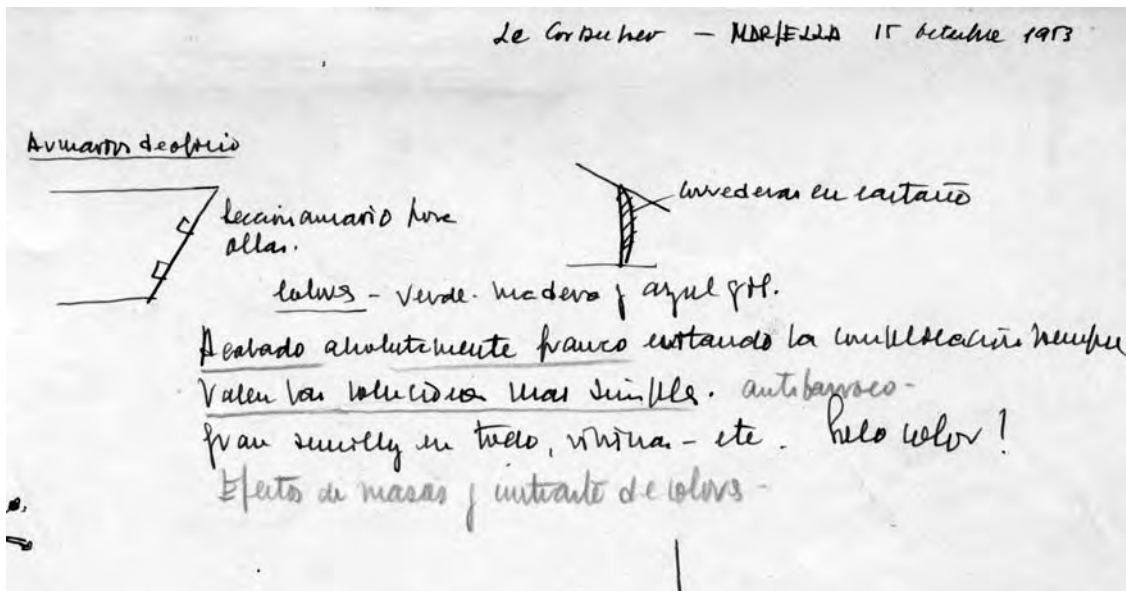 Le Corbusier — MARSELLA 15 octubre 1953
Armarios de oficio
Sección armario para
ollas.
correderas en castaño
colores - verde. madera y azul gris.
Acabado absolutamente franco evitando la complicación siempre
valen las soluciones mas simples. antibarroco -
gran sencillez en todo, vitrinas - etc. color!
Efectos de masas y contraste de colores -